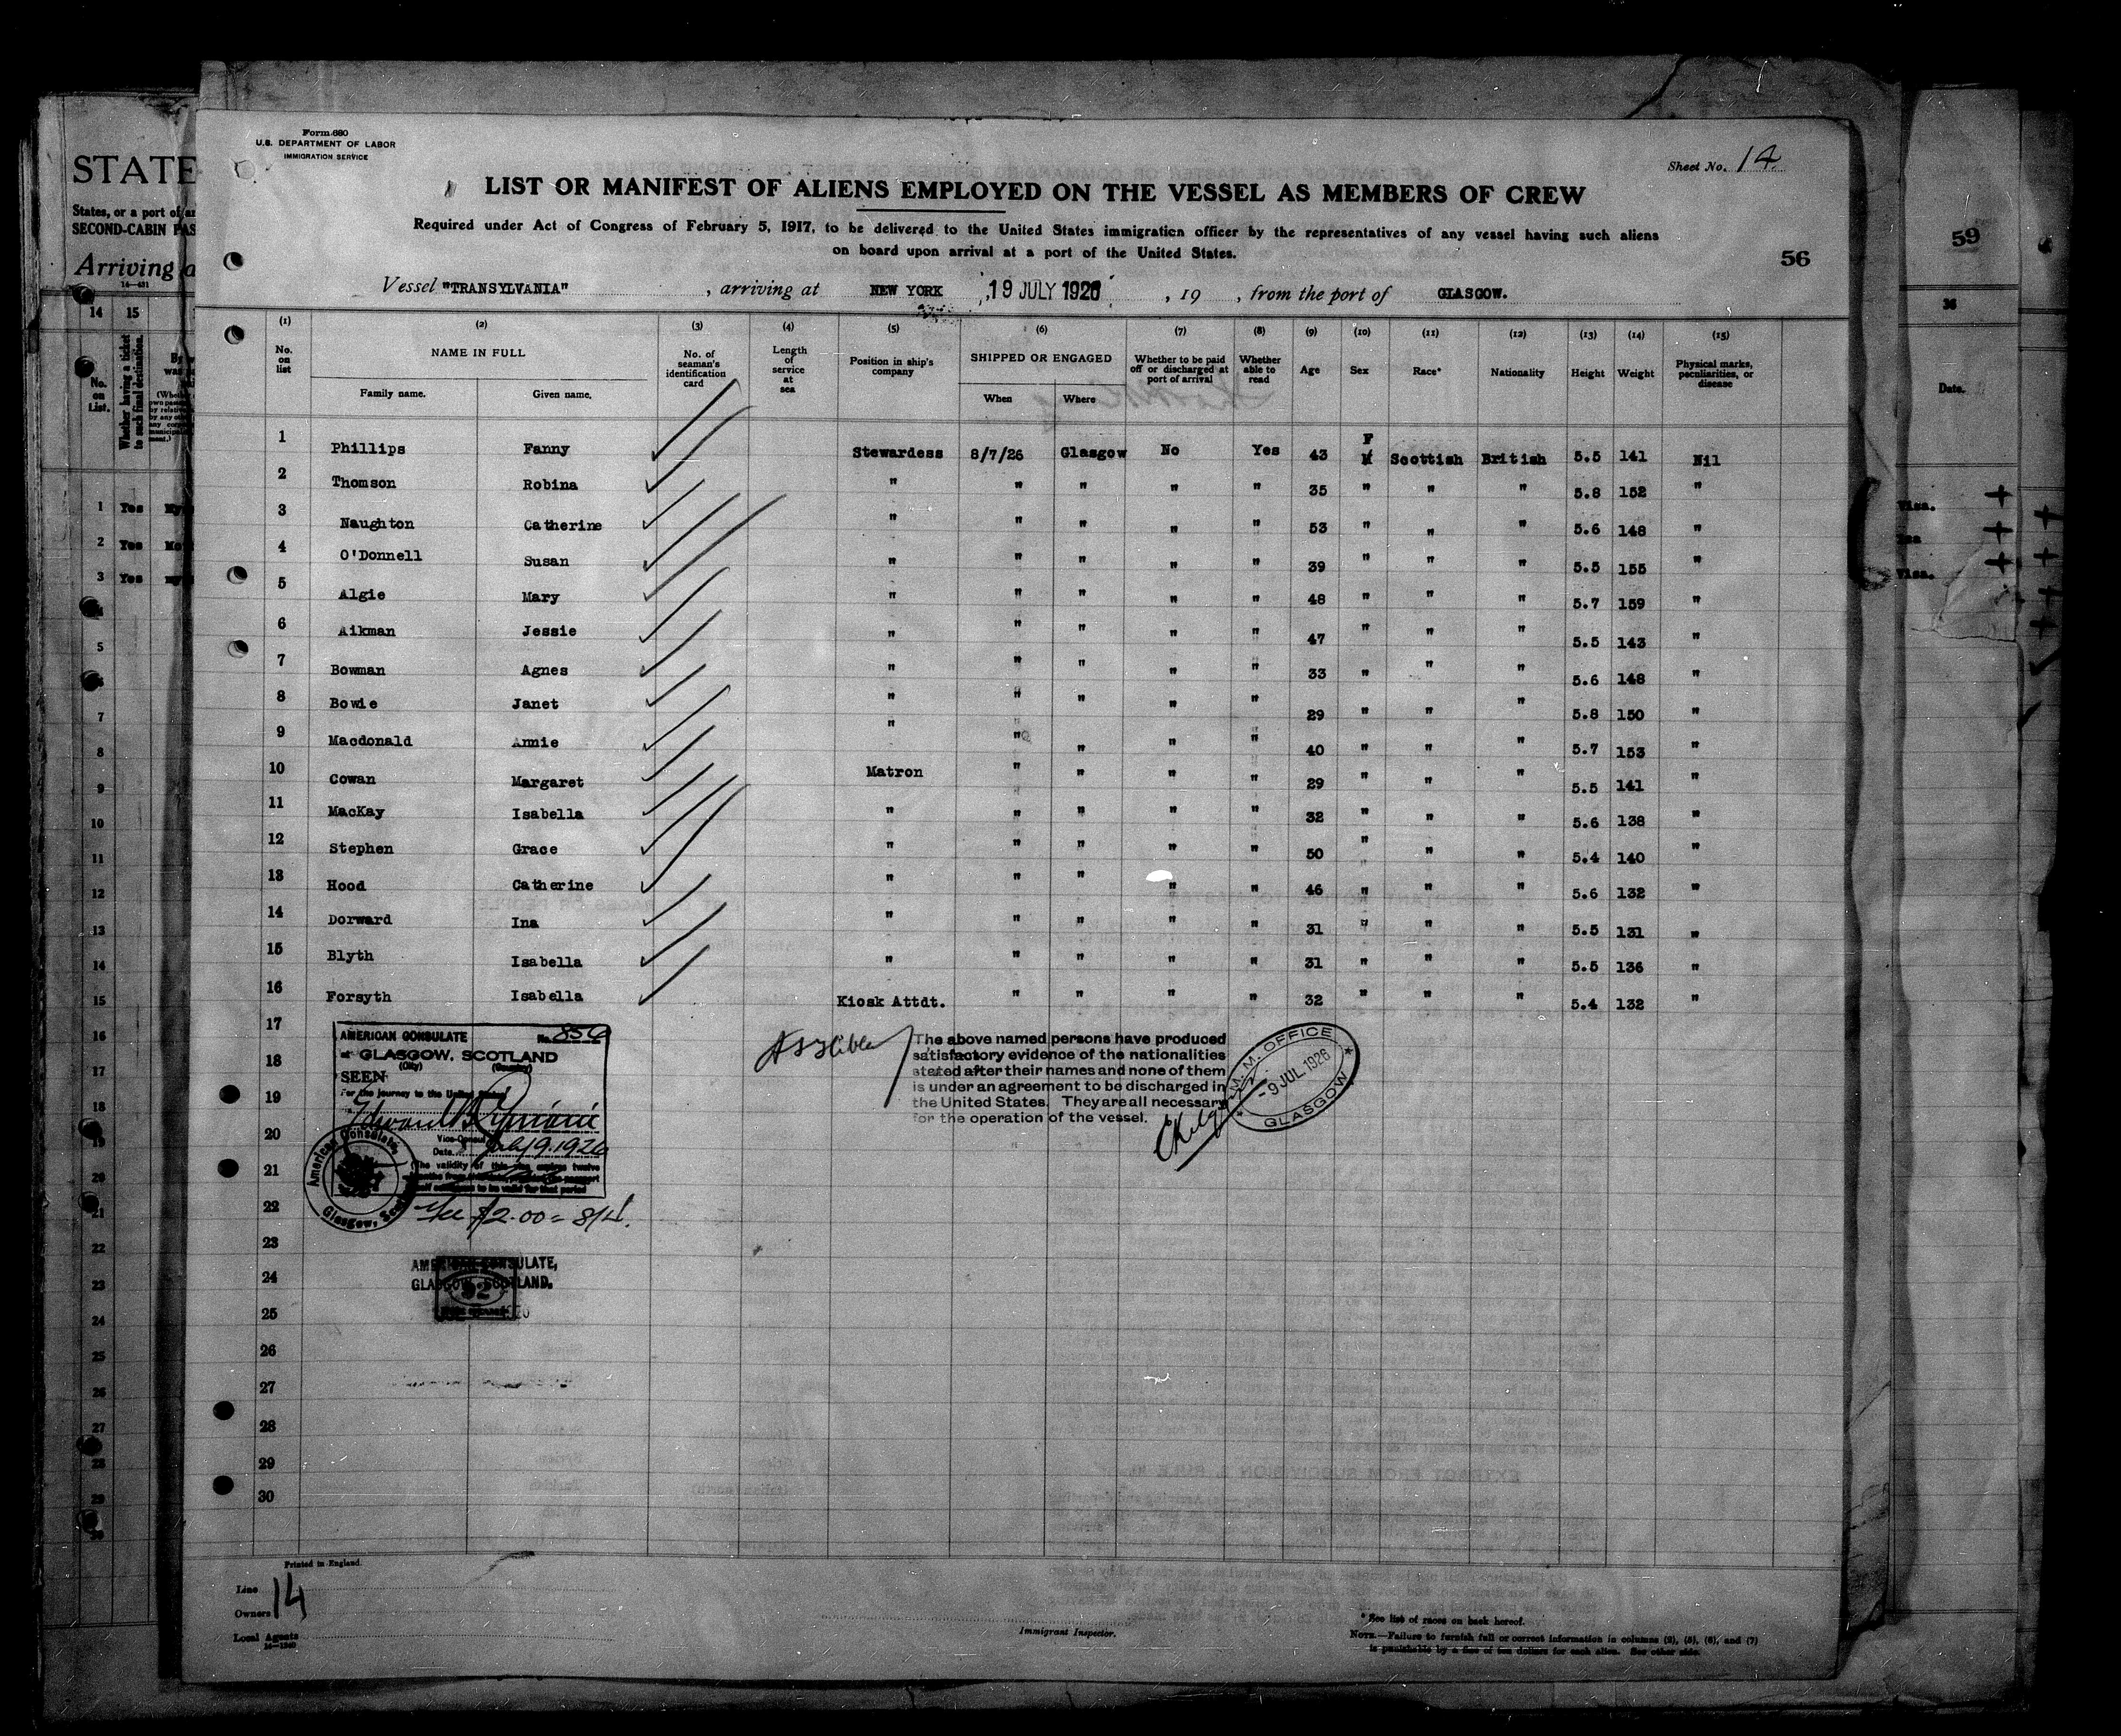 Form 680
U.S. DEPARTMENT OF LABOR
IMMIGRATION SERVICE
Sheet No. 14
LIST OR MANIFEST OF ALIENS EMPLOYED ON THE VESSEL AS MEMBERS OF CREW
Required under Act of Congress of February 5, 1917, to be delivered to the United States immigration officer by the representatives of any vessel having such aliens
on board upon arrival at a port of the United States.
56
Vessel "TRANSYLVANIA" , arriving at NEW YORK 19 JULY 1926 , 19 , from the port of GLASGOW.
(1) (2) (3) (4) (5) (6) (7) (8) (9) (10) (11) (12) (13) (14) (15)
No. on list NAME IN FULL Family name. Given name. No. of seaman's identification card Length of service at sea Position in ship's company SHIPPED OR ENGAGED When Where Whether to be paid off or discharged at port of arrival Whether able to read Age Sex Race* Nationality Height Weight Physical marks, peculiarities, or disease
1 Phillips Fanny Stewardess 8/7/26 Glasgow No Yes 43 F Scottish British 5.5 141 Nil
2 Thomson Robina " " " " " 35 " " " 5.8 152 "
3 Naughton Catherine " " " " " 53 " " " 5.6 148 "
4 O'Donnell Susan " " " " " 39 " " " 5.5 155 "
5 Algie Mary " " " " " 48 " " " 5.7 159 "
6 Aikman Jessie " " " " " 47 " " " 5.5 143 "
7 Bowman Agnes " " " " " 33 " " " 5.6 148 "
8 Bowie Janet " " " " " 29 " " " 5.8 150 "
9 Macdonald Annie " " " " " 40 " " " 5.7 153 "
10 Cowan Margaret Matron " " " " 29 " " " 5.5 141 "
11 MacKay Isabella " " " " " 32 " " " 5.6 138 "
12 Stephen Grace " " " " " 50 " " " 5.4 140 "
13 Hood Catherine " " " " " 46 " " " 5.6 132 "
14 Dorward Ina " " " " " 31 " " " 5.5 131 "
15 Blyth Isabella " " " " " 31 " " " 5.5 136 "
16 Forsyth Isabella Kiosk Attdt. " " " " 32 " " " 5.4 132 "
17
18
19
20
21
22
23
24
25
26
27
28
29
30
AMERICAN CONSULATE No. 856
at GLASGOW, SCOTLAND
(City) (Country)
SEEN
For the journey to the United States
Vice-Consul
Date July 9. 1926
(The validity of this visa expires twelve
American Consulate
Glasgow, Scotland
Fee $2.00 = 8/4.
AMERICAN CONSULATE,
GLASGOW, SCOTLAND.
The above named persons have produced
satisfactory evidence of the nationalities
stated after their names and none of them
is under an agreement to be discharged in
the United States. They are all necessary
for the operation of the vessel.
M. M. OFFICE
-9 JUL 1926
GLASGOW
Printed in England.
Line
Owners 14
Local Agents
Immigrant Inspector.
* See list of races on back hereof.
NOTE.—Failure to furnish full or correct information in columns (2), (5), (6), and (7)
is punishable by a fine of ten dollars for each alien. See other side.
STATE
States, or a port of
SECOND-CABIN
Arriving
14 15
No. on List.
Whether having a ticket to such final destination.
1 Yes
2 Yes
3 Yes
59
36
Date.
Visa.
Visa.